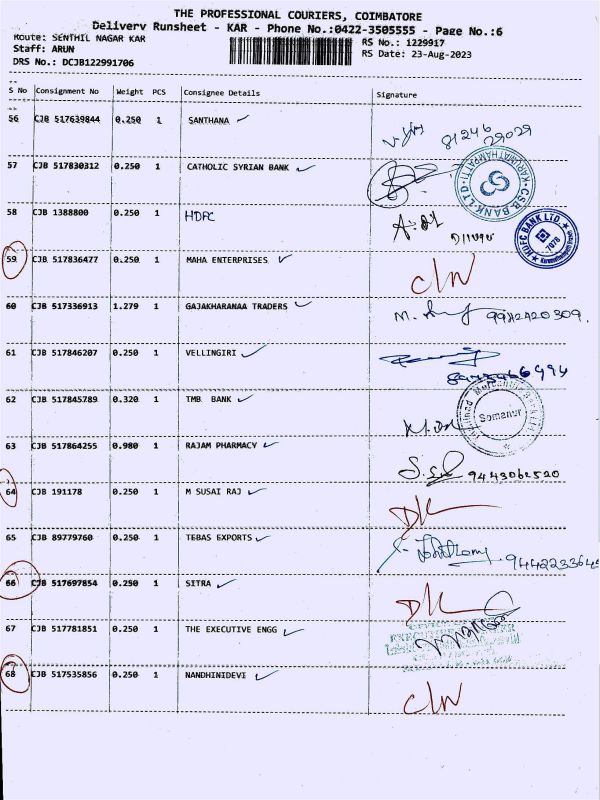 THE PROFESSIONAL COURIERS, COIMBATORE
Delivery Runsheet - KAR - Phone No.:0422-3505555 - Page No.:6
Route: SENTHIL NAGAR KAR
RS No.: 1229917
Staff: ARUN
RS Date: 23-Aug-2023
DRS No.: DCJB122991706
S No Consignment No Weight PCS Consignee Details Signature
56 CJB 517639844 0.250 1 SANTHANA
81246
29029
57 CJB 517830312 0.250 1 CATHOLIC SYRIAN BANK
CSB BANK LTD KARUMATHAMPATTI
58 CJB 1388800 0.250 1 HDFC
HDFC BANK LTD.
7078
59 CJB 517836477 0.250 1 MAHA ENTERPRISES C/W
60 CJB 517336913 1.279 1 GAJAKHARANAA TRADERS
61 CJB 517846207 0.250 1 VELLINGIRI
62 CJB 517845789 0.320 1 TMB. BANK
Tamilnad Mercantile Bank Ltd
Somanur
63 CJB 517864255 0.980 1 RAJAM PHARMACY 9443062520
64 CJB 191178 0.250 1 M SUSAI RAJ D/L
65 CJB 89779760 0.250 1 TEBAS EXPORTS
66 CJB 517697854 0.250 1 SITRA D/L
67 CJB 517781851 0.250 1 THE EXECUTIVE ENGG
68 CJB 517535856 0.250 1 NANDHINIDEVI C/W